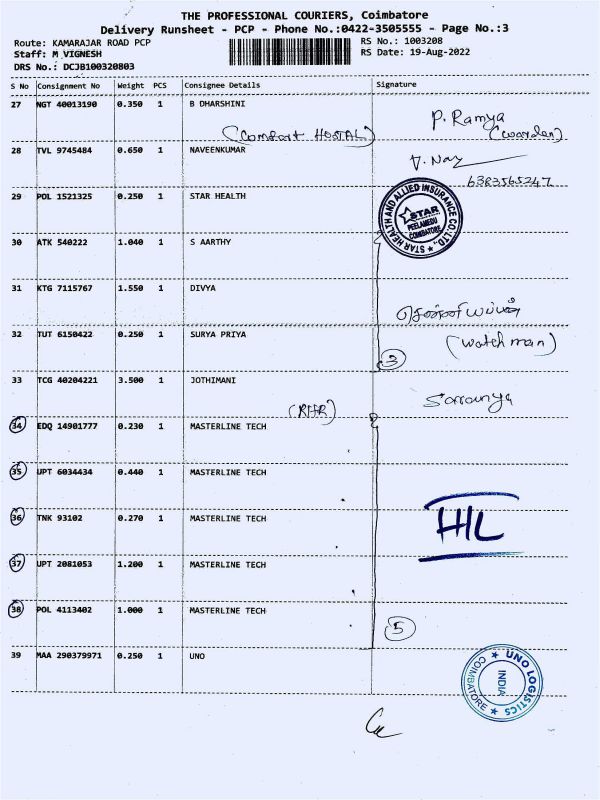 THE PROFESSIONAL COURIERS, Coimbatore
Delivery Runsheet - PCP - Phone No.:0422-3505555 - Page No.:3
Route: KAMARAJAR ROAD PCP
RS No.: 1003208
Staff: M VIGNESH
RS Date: 19-Aug-2022
DRS No.: DCJB100320803
S No Consignment No Weight PCS Consignee Details Signature
27 NGT 40013190 0.350 1 B DHARSHINI
P. Ramya
(Comfort HOSTAL) (warden)
28 TVL 9745484 0.650 1 NAVEENKUMAR
6383565247
29 POL 1521325 0.250 1 STAR HEALTH
STAR HEALTH AND ALLIED INSURANCE CO.LTD.,
STAR
PEELAMEDU
COIMBATORE
30 ATK 540222 1.040 1 S AARTHY
31 KTG 7115767 1.550 1 DIVYA
32 TUT 6150422 0.250 1 SURYA PRIYA
(watch man)
3
33 TCG 40204221 3.500 1 JOTHIMANI
34 EDQ 14901777 0.230 1 MASTERLINE TECH
35 UPT 6034434 0.440 1 MASTERLINE TECH
36 TNK 93102 0.270 1 MASTERLINE TECH
37 UPT 2081053 1.200 1 MASTERLINE TECH
38 POL 4113402 1.000 1 MASTERLINE TECH
5
39 MAA 290379971 0.250 1 UNO
UNO LOGISTICS
COIMBATORE
INDIA